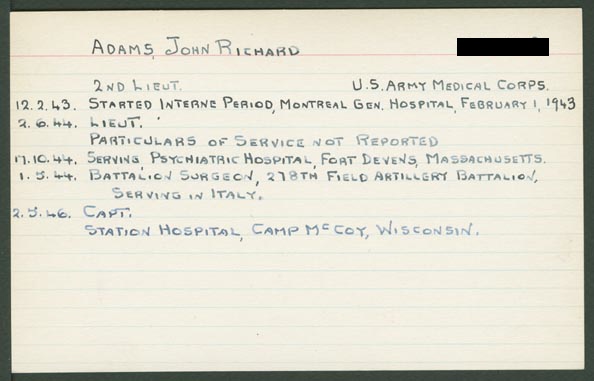 ADAMS, JOHN RICHARD
2ND LIEUT. U.S. ARMY MEDICAL CORPS.
12.2.43. STARTED INTERNE PERIOD, MONTREAL GEN. HOSPITAL, FEBRUARY 1, 1943
2.6.44. LIEUT.
PARTICULARS OF SERVICE NOT REPORTED
17.10.44. SERVING PSYCHIATRIC HOSPITAL, FORT DEVENS, MASSACHUSETTS.
1.5.44. BATTALION SURGEON, 278TH FIELD ARTILLERY BATTALION,
SERVING IN ITALY.
2.5.46. CAPT.
STATION HOSPITAL, CAMP McCOY, WISCONSIN.